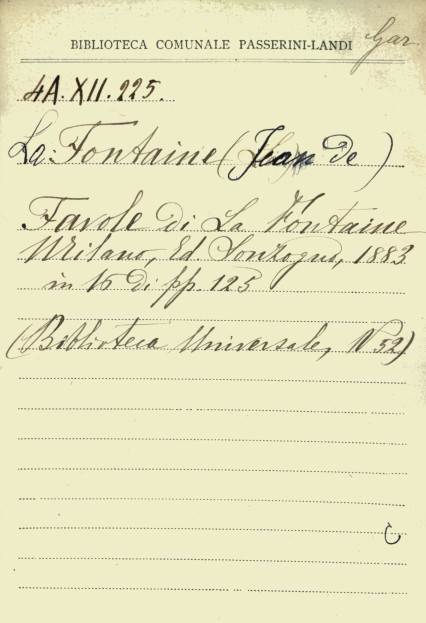 Gar.
BIBLIOTECA COMUNALE PASSERINI-LANDI
4A. XII. 225.
La Fontaine (Jean de)
Favole di La Fontaine
Milano, Ed. Sonzogno, 1883
in 16 di pp. 125
(Biblioteca Universale, N 52)
C